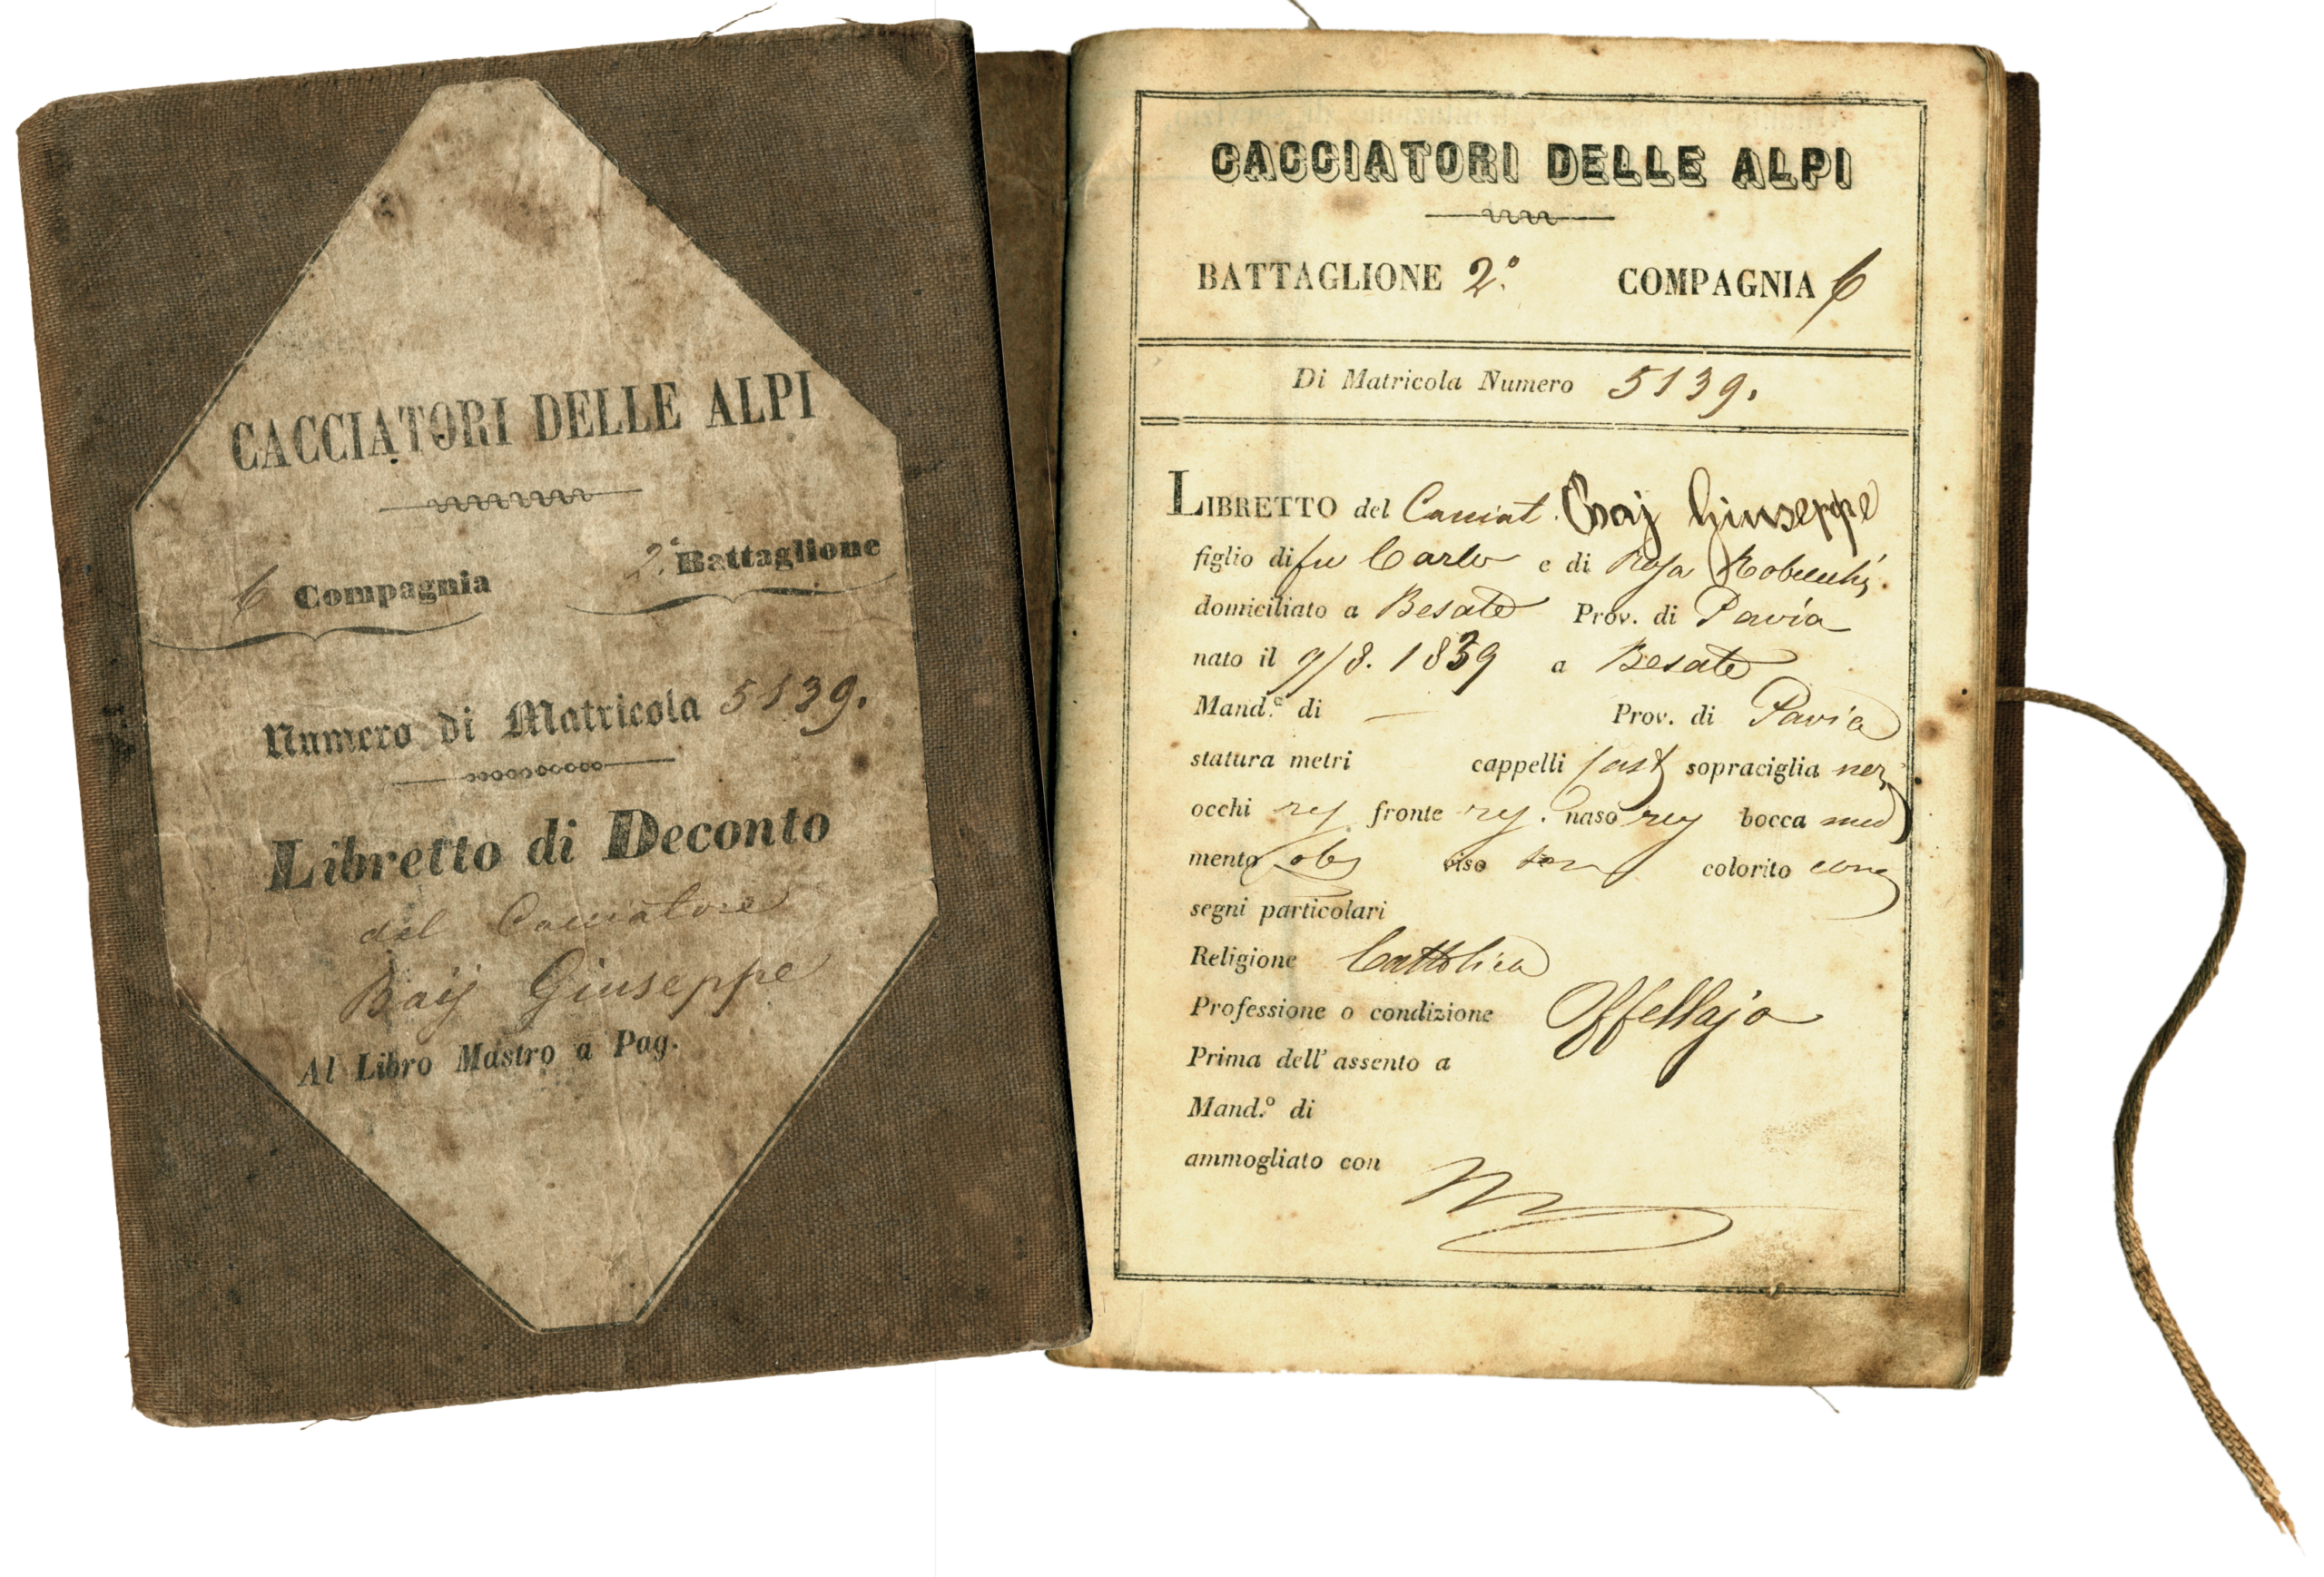 CACCIATORI DELLE ALPI
6 Compagnia 2.° Battaglione
Numero di Matricola 5139.
Libretto di Deconto
del Cacciatore
Baij Giuseppe
Al Libro Mastro a Pag.
CACCIATORI DELLE ALPI
BATTAGLIONE 2.° COMPAGNIA 6
Di Matricola Numero 5139.
LIBRETTO del Cacciat. Baij Giuseppe
figlio di fu Carlo e di Rosa Robecchi
domiciliato a Besate Prov. di Pavia
nato il 9/8. 1839 a Besate
Mand.° di — Prov. di Pavia
statura metri cappelli cast sopraciglia ner
occhi fronte reg. naso reg bocca med
mento viso colorito
segni particolari
Religione Cattolica
Professione o condizione Offellajo
Prima dell' assento a
Mand.° di
ammogliato con